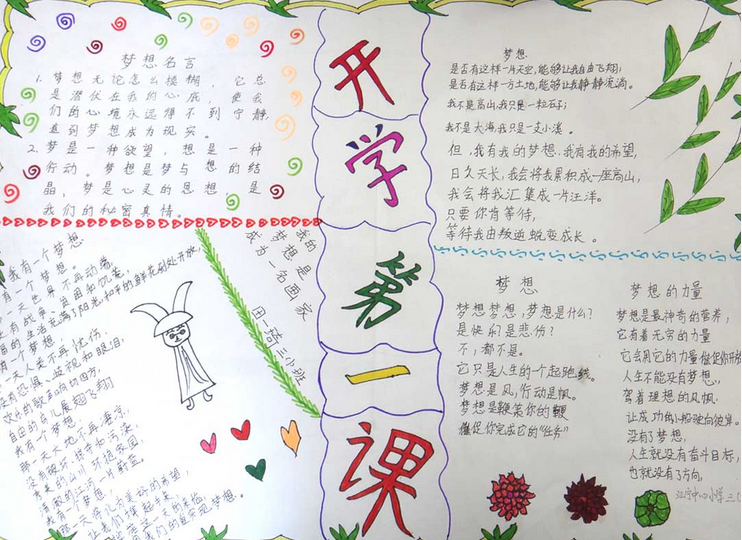 开学第一课
梦想名言
1. 梦想无论怎么模糊，它总
是潜伏在我的心底，使我
们的心境永远得不到宁静，
直到梦想成为现实。
2. 梦是一种欲望，想是一种
行动。梦想是梦与想的结
晶，梦是心灵的思想，是
我们的秘密真情。
梦想
是否有这样一片天空，能够让我自由飞翔；
是否有这样一方土地，能够让我静静流淌。
我不是高山，我只是一粒石子；
我不是大海，我只是一支小溪。
但，我有我的梦想，我有我的希望，
日久天长，我会将我累积成一座高山，
我会将我汇集成一片汪洋。
只要你肯等待，
等待我由叛逆蜕变成长。
我有一个梦想
有一个梦想。
一天世界不再动荡
没有战争、贫困和饥荒，
的生活充满了阳光，和平的鲜花到处开放
有一个梦想，
一天人类不再忧伤
没有恐惧、歧视和眼泪，
欢快的歌声响彻四方，
自由的鸟儿展翅飞翔
我有一个梦想，
那一天大地不再
没有破坏、掠夺和污染，
秀美的山川 环抱家园，
清澈的江河一片蔚蓝。
我有一个梦想，
我的
梦想是
成为一名画家
田琦 三小班
梦想
梦想梦想，梦想是什么？
是快乐？是悲伤？
不，都不是。
它只是人生的一个起跑线。
梦想是风，行动是帆。
梦想是鞭策你的鞭
催促你完成它的“任务”
梦想的力量
梦想是最神奇的营养，
它有着无穷的力量
它会用它的力量催促你开放
人生不能没有梦想，
驾着理想的风帆
让成功的小船驶向彼岸。
没有了梦想，
人生就没有奋斗目标，
也就没有了方向，
中心小学 三